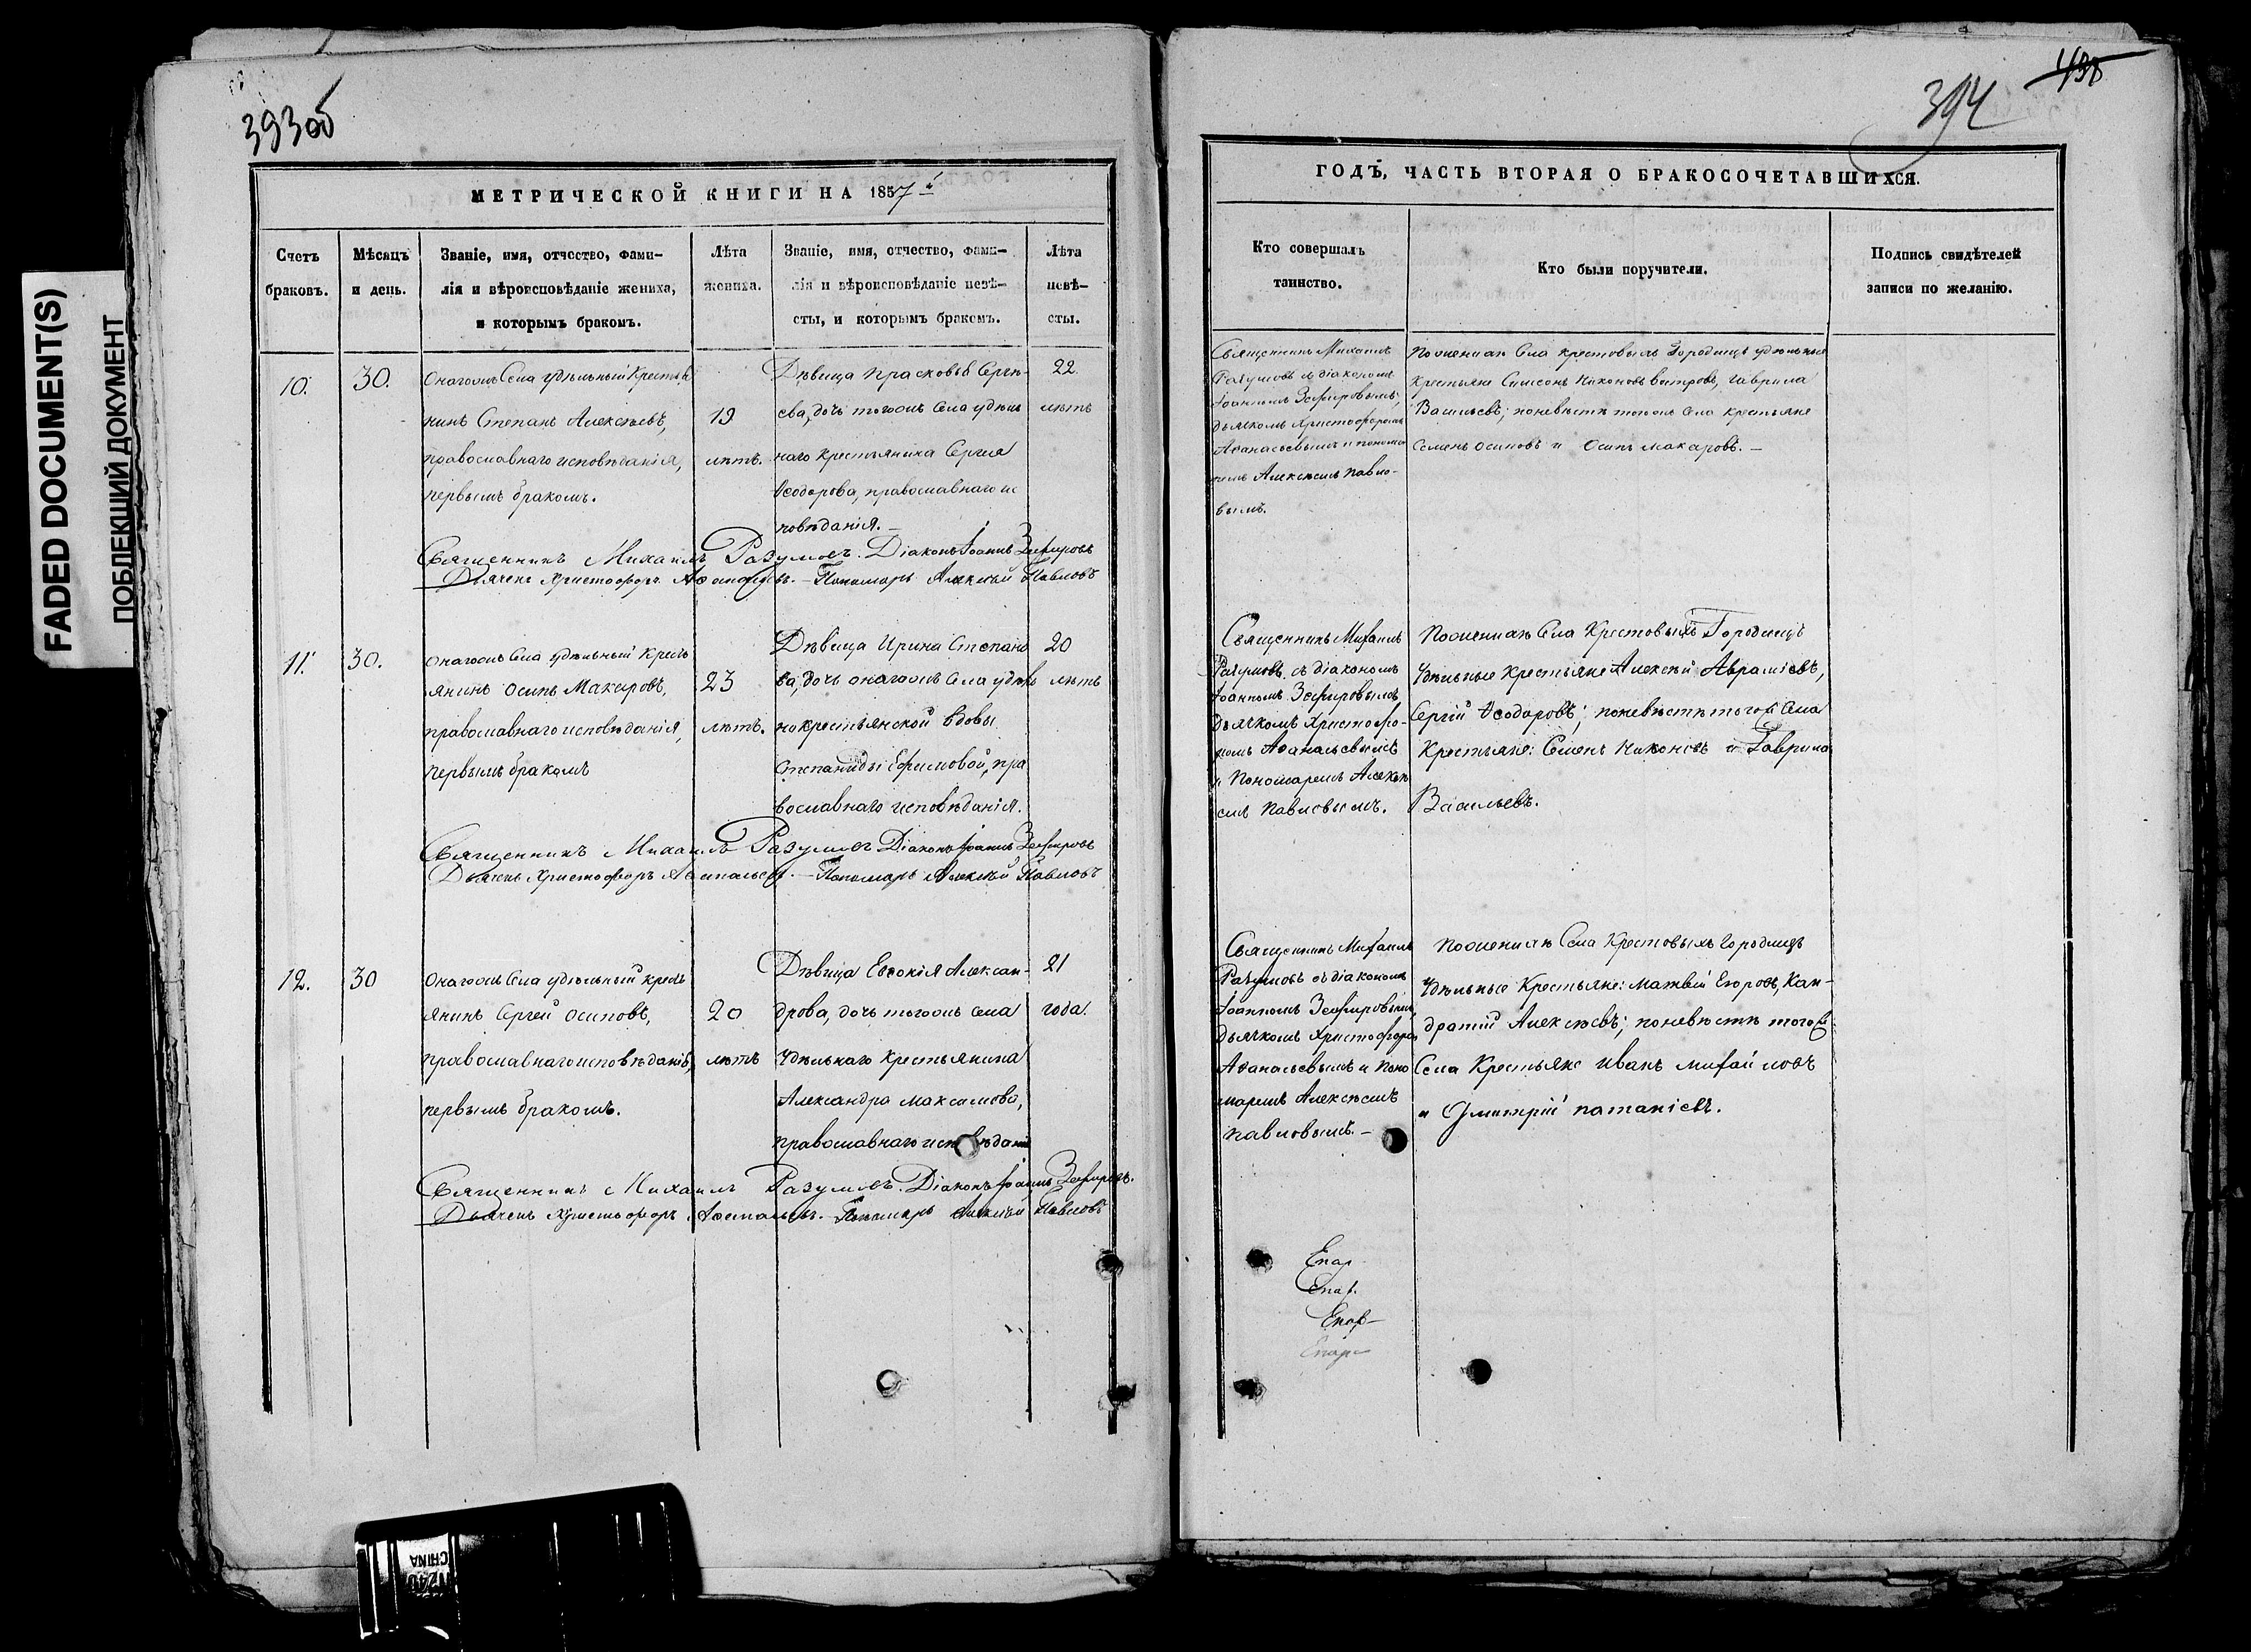 FADED DOCUMENT(S)
ПОБЛЕКШИЙ ДОКУМЕНТ
393об
МЕТРИЧЕСКОЙ КНИГИ НА 1857
Счетъ браковъ.
Мѣсяцъ и день.
Званіе, имя, отчество, фами-
лія и вѣроисповѣданіе жениха,
и которымъ бракомъ.
Лѣта жениха.
Званіе, имя, отчество, фами-
лія и вѣроисповѣданіе невѣ-
сты, и которымъ бракомъ.
Лѣта невѣ-
сты.
10.
30.
Онагожъ Села удѣльный Крестья
нинъ Степанъ Алексѣевъ,
православнаго исповѣданія,
первымъ бракомъ.
19
лѣтъ.
Дѣвица Прасковья Сергѣ-
ева, дочь тогожъ Села удѣль
наго крестьянина Сергея
Ѳеодорова, православнаго ис
повѣданія.
22
лѣтъ
Священникъ Михаилъ Разумовъ. Діаконъ Іоаннъ Зефировъ
Дьячекъ Христофоръ Аѳанасьевъ. – Пономарь Алексѣй Павловъ
11.
30.
Онагожъ Села удѣльный Крест
янинъ Осипъ Макаровъ,
православнаго исповѣданія,
первымъ бракомъ
23
лѣтъ.
Дѣвица Ирина Степано
ва, дочь онагожъ Села удѣль
но крестьянской вдовы
Степаниды Ефимовой, пра
вославнаго исповѣданія.
20
лѣтъ
Священникъ Михаилъ Разумовъ Діаконъ Іоаннъ Зефировъ
Дьячекъ Христофоръ Аѳанасьевъ. – Пономарь Алексѣй Павловъ
12.
30
Онагожъ Села удѣльный крест
янинъ Сергей Осиповъ,
православнаго исповѣданія,
первымъ бракомъ.
20
лѣтъ
Дѣвица Евдокія Алексан-
дрова, дочь тогожъ Села
Удѣльнаго Крестьянина
Александра Максимова,
православнаго исповѣданія
21
года.
Священникъ Михаилъ Разумовъ. Діаконъ Іоаннъ Зефировъ.
Дьячекъ Христофоръ Аѳанасьевъ. – Пономарь Алексѣй Павловъ
394
438
ГОДЪ, ЧАСТЬ ВТОРАЯ О БРАКОСОЧЕТАВШИХСЯ.
Кто совершалъ
таинство.
Кто были поручители.
Подпись свидѣтелей
записи по желанію.
Священникъ Михаилъ
Разумовъ съ діакономъ
Іоанномъ Зефировымъ,
дьячкомъ Христофоромъ
Аѳанасьевымъ и понома
ремъ Алексѣемъ Павло-
вымъ.
По женихѣ Села Крестовыхъ Городищъ удѣльные
Крестьяне Симеонъ Никоновъ Вотровъ, Гаврила
Васильевъ; по невѣстѣ тогожъ Села крестьяне
Семенъ Осиповъ и Осипъ Макаровъ. –
Священникъ Михаилъ
Разумовъ съ діакономъ
Іоанномъ Зефировымъ
Дьячкомъ Христофо-
ромъ Аѳанасьевымъ
и Пономаремъ Алексѣ
емъ Павловымъ.
По женихѣ Села Крестовыхъ Городищъ
Удѣльные Крестьяне Алексѣй Авраміевъ,
Сергѣй Ѳеодоровъ; по невѣстѣ тогожъ Села
Крестьяне: Семенъ Никоновъ и Гаврила
Васильевъ.
Священникъ Михаилъ
Разумовъ съ діакономъ
Іоанномъ Зефировымъ,
дьячкомъ Христофоромъ
Аѳанасьевымъ и Поно
маремъ Алексѣемъ
Павловымъ. –
По женихѣ Села Крестовыхъ Городищъ
Удѣльные Крестьяне: Матвѣй Егоровъ, Кан-
дратій Алексѣевъ; по невѣстѣ тогожъ
Села Крестьяне Иванъ Михайловъ
и Дмитрій Патапіевъ.
Епар
Епар.
Епар
Епар
CHINA